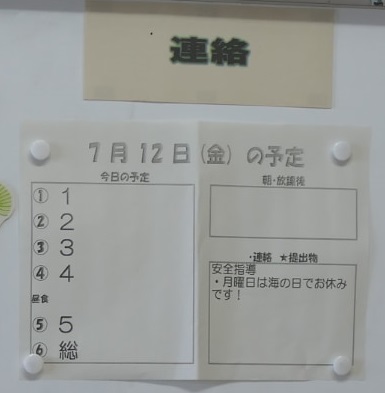 連絡
7月12日(金)の予定
今日の予定
① 1
② 2
③ 3
④ 4
昼食
⑤ 5
⑥ 総
朝・放課後
・連絡 ★提出物
安全指導
・月曜日は海の日でお休み
です！